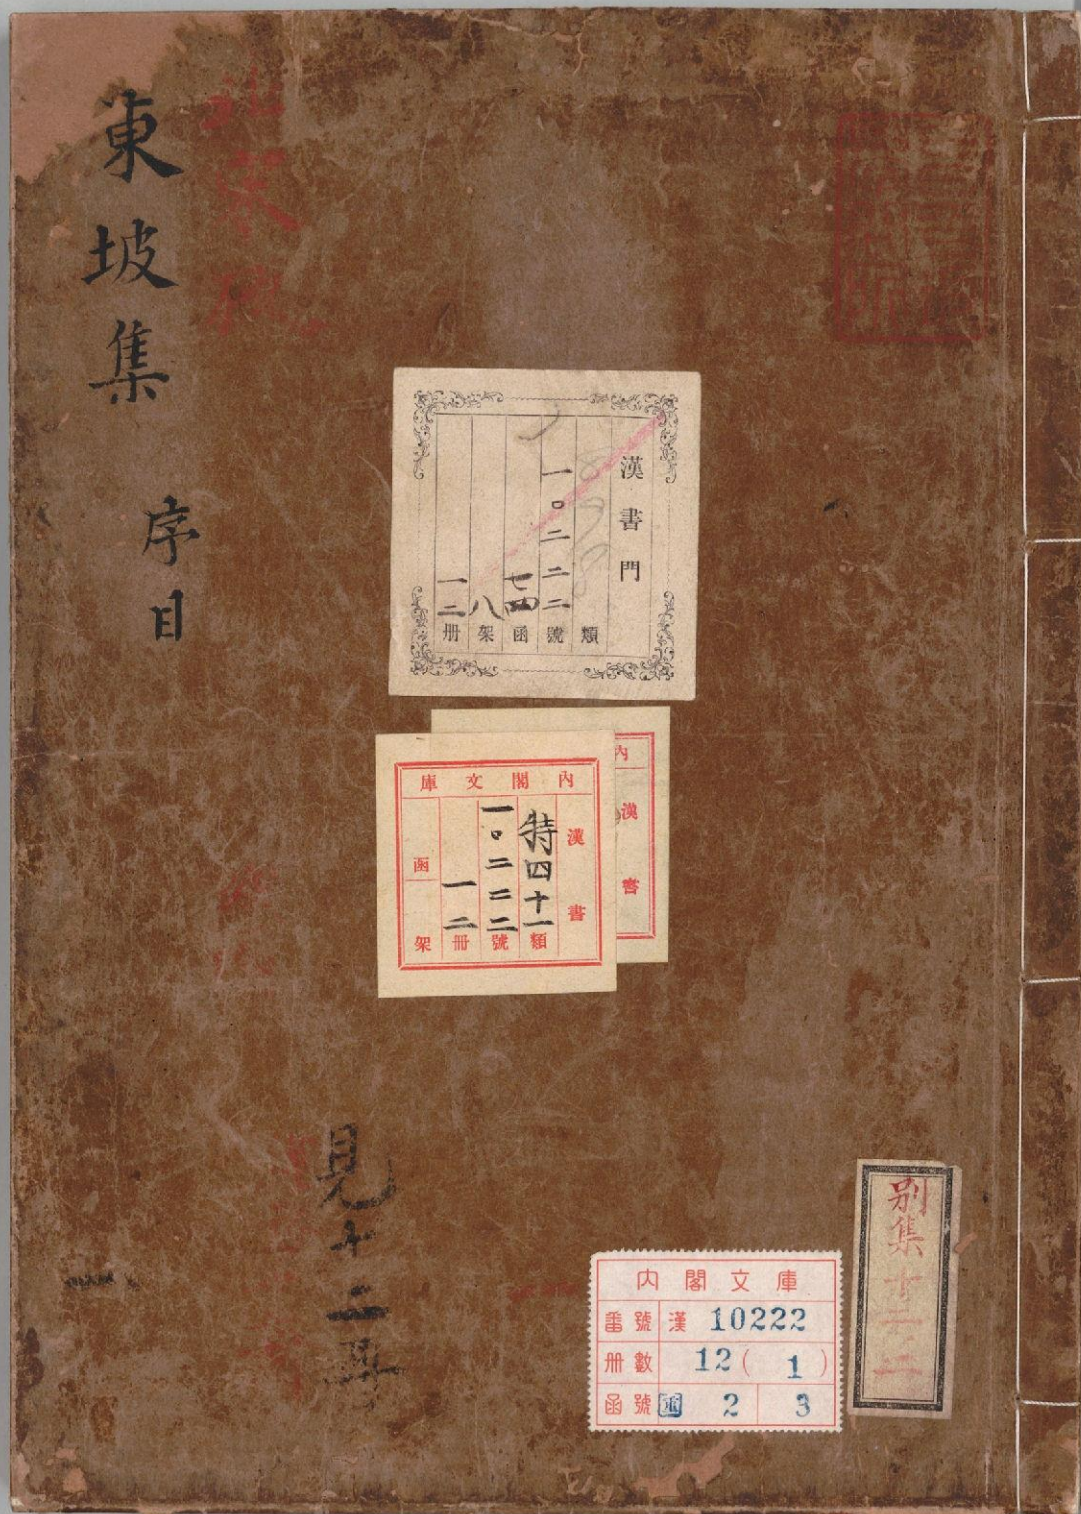 東坡集 序目
漢書門
類
一〇二二二號
七四函
八架
一二册
內閣文庫
漢書
特四十一類
一〇二二二號
一二册
函
架
內
漢
書
見十二冊
一
別集
內閣文庫
番號 漢 10222
册數 12(1)
函號 2 3